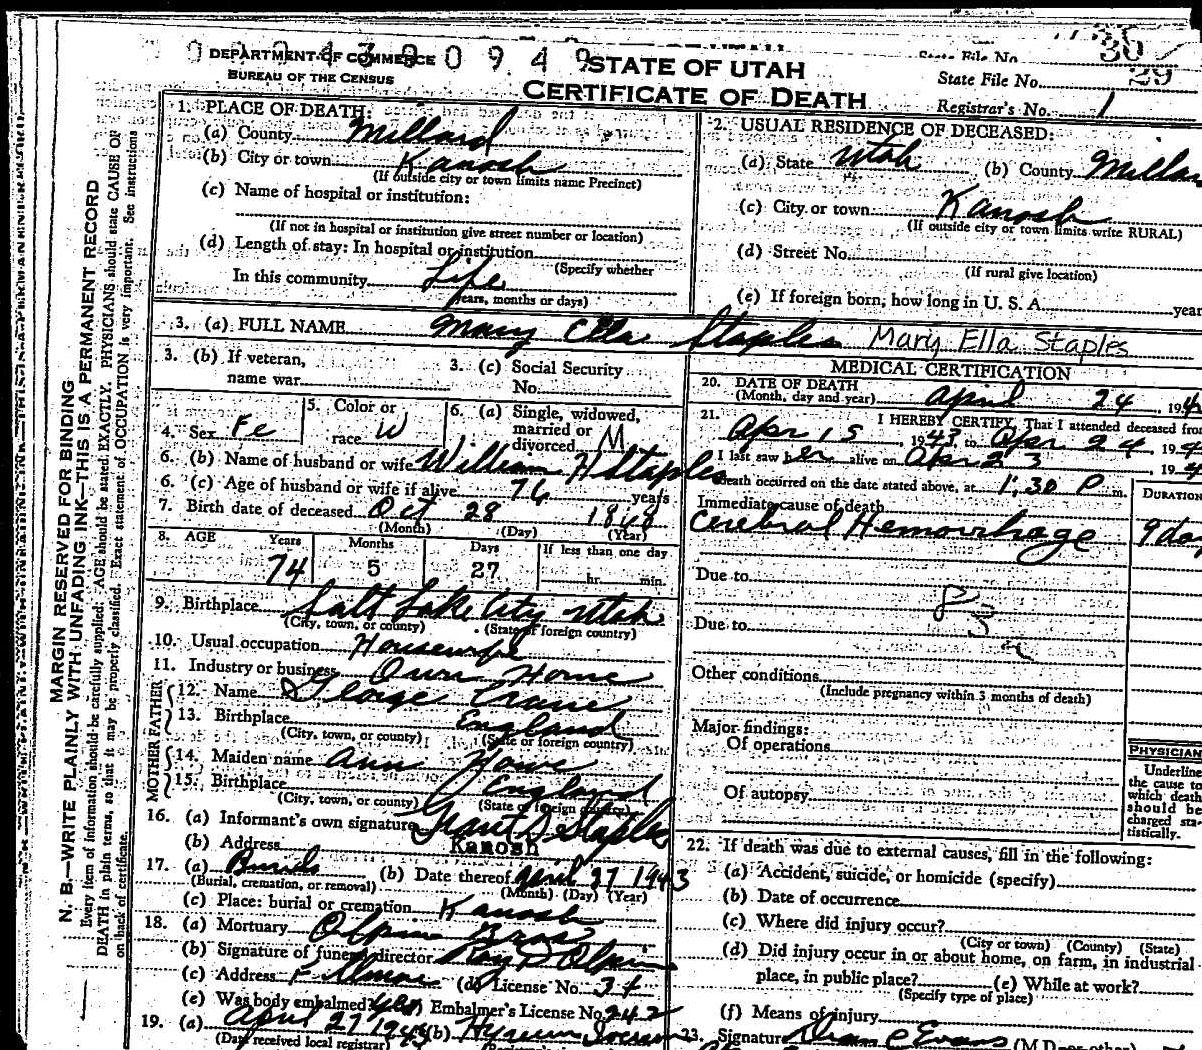 0 9 4 9
DEPARTMENT OF COMMERCE
BUREAU OF THE CENSUS
STATE OF UTAH
CERTIFICATE OF DEATH
State File No.
30
State File No. 29
Registrar's No. 1
MARGIN RESERVED FOR BINDING
N. B.—WRITE PLAINLY WITH UNFADING INK—THIS IS A PERMANENT RECORD
Every item of information should be carefully supplied. AGE should be stated EXACTLY. PHYSICIANS should state CAUSE OF
DEATH in plain terms, so that it may be properly classified. Exact statement of OCCUPATION is very important. See instructions
on back of certificate.
1. PLACE OF DEATH:
(a) County Millard
(b) City or town Kanosh
(If outside city or town limits name Precinct)
(c) Name of hospital or institution:
(If not in hospital or institution give street number or location)
(d) Length of stay: In hospital or institution
(Specify whether
In this community Life
years, months or days)
2. USUAL RESIDENCE OF DECEASED:
(a) State Utah (b) County Millar
(c) City or town Kanosh
(If outside city or town limits write RURAL)
(d) Street No.
(If rural give location)
(e) If foreign born, how long in U. S. A. year
3. (a) FULL NAME Mary Ella Staples Mary Ella Staples
3. (b) If veteran,
name war
3. (c) Social Security
No.
4. Sex Fe
5. Color or
race W
6. (a) Single, widowed,
married or
divorced M
6. (b) Name of husband or wife William H Staples
6. (c) Age of husband or wife if alive 76 years
7. Birth date of deceased Oct 28 1868
(Month) (Day) (Year)
8. AGE Years Months Days If less than one day
74 5 27 hr. min.
9. Birthplace Salt Lake City Utah
(City, town, or county) (State or foreign country)
10. Usual occupation Housewife
11. Industry or business Own Home
FATHER
12. Name George Crane
13. Birthplace England
(City, town, or county) (State or foreign country)
MOTHER
14. Maiden name Ann Howe
15. Birthplace England
(City, town, or county) (State or foreign country)
16. (a) Informant's own signature Grant D Staples
(b) Address Kanosh
17. (a) Burial (b) Date thereof April 27 1943
(Burial, cremation, or removal) (Month) (Day) (Year)
(c) Place: burial or cremation Kanosh
18. (a) Mortuary Olpin Bros
(b) Signature of funeral director Ray D Olpin
(c) Address Fillmore (d) License No. 34
(e) Was body embalmed? Yes (f) Embalmer's License No. 242
19. (a) April 27 1943 (b) Hyrum Iverson
(Date received local registrar)
MEDICAL CERTIFICATION
20. DATE OF DEATH
(Month, day and year) April 24, 194
21. I HEREBY CERTIFY, That I attended deceased from
Apr 15 1943 to Apr 24, 194
I last saw her alive on Apr 23 194
Death occurred on the date stated above, at 1:30 P m.
Immediate cause of death
Cerebral Hemorrhage
DURATION
9 day
Due to
Due to
Other conditions
(Include pregnancy within 3 months of death)
Major findings:
Of operations
Of autopsy
PHYSICIAN
Underline
the cause to
which death
should be
charged sta-
tistically.
22. If death was due to external causes, fill in the following:
(a) Accident, suicide, or homicide (specify)
(b) Date of occurrence
(c) Where did injury occur?
(City or town) (County) (State)
(d) Did injury occur in or about home, on farm, in industrial
place, in public place? (e) While at work?
(Specify type of place)
(f) Means of injury
23. Signature Dean C Evans (M.D. or other)